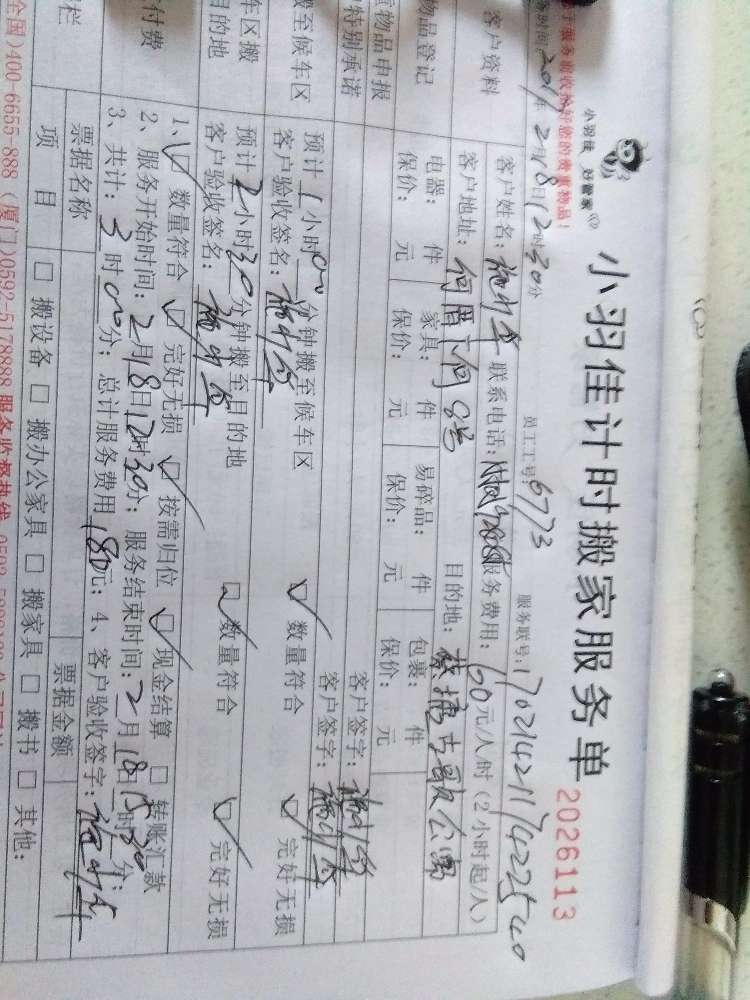 小羽佳 好管家
小羽佳计时搬家服务单
2026113
服务前收拾好您的贵重物品！
时间：2017年2月18日12时30分
员工工号：6773
服务联号：1702142117422540
客户资料
客户姓名：
联系电话：
服务费用：60元/人/时（2小时起/人）
客户地址：何厝下何8号
目的地：
古歌公寓
物品登记
电器： 件 家具： 件 易碎品： 件 包裹： 件
保价： 元 保价： 元 保价： 元 保价： 元
物品申报
特别承诺
客户签字：
客户签字：
搬至候车区
预计1小时00分钟搬至候车区
数量符合
完好无损
客户验收签名：
车区搬
目的地
预计2小时30分钟搬至目的地
数量符合
完好无损
客户验收签名：
付费
1、 数量符合 完好无损 按需归位 现金结算 □ 转账汇款
2、服务开始时间：2月18日12时30分；服务结束时间：2月18日15时30分；
3、共计：3时00分；总计服务费用180元；4、客户验收签字：
栏
票据名称
票据金额
项 目
□ 搬设备 □ 搬办公家具 □ 搬家具 □ 搬书 □ 其他：
全国)400-6655-888 (厦门)0592-5178888 服务监督热线